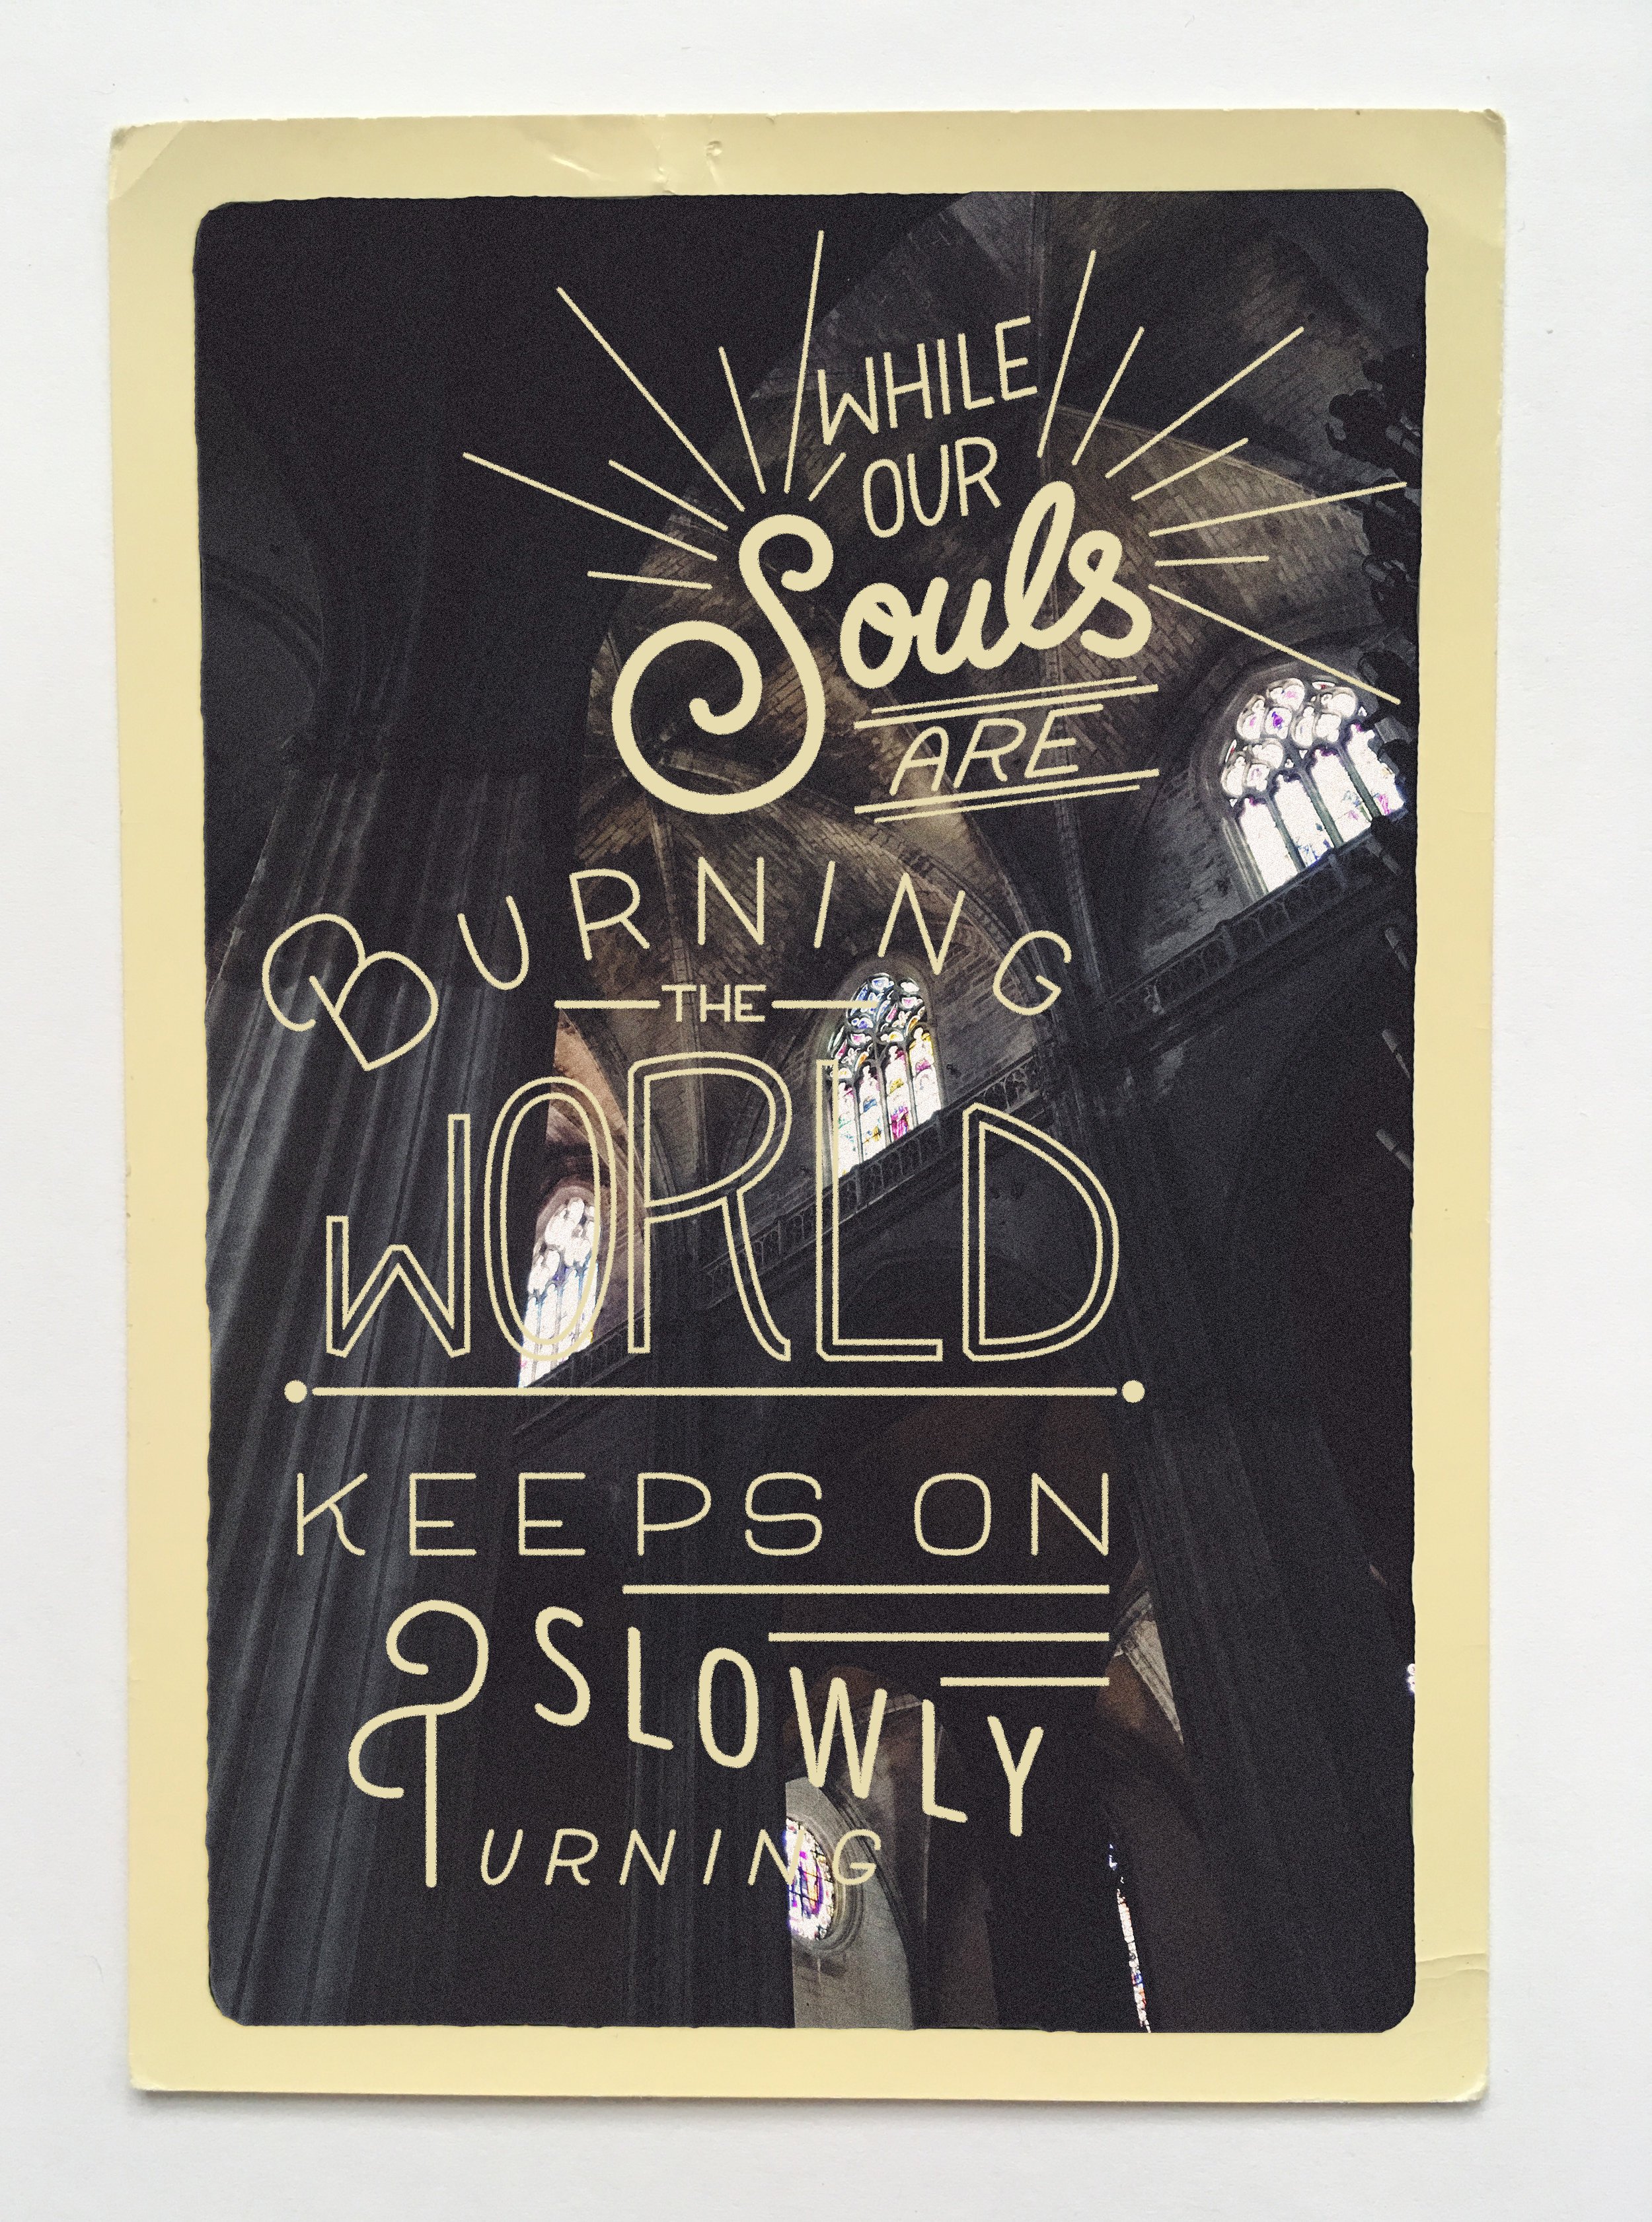 WHILE
OUR
Souls
ARE
BURNING
THE
WORLD
KEEPS ON
SLOWLY
TURNING